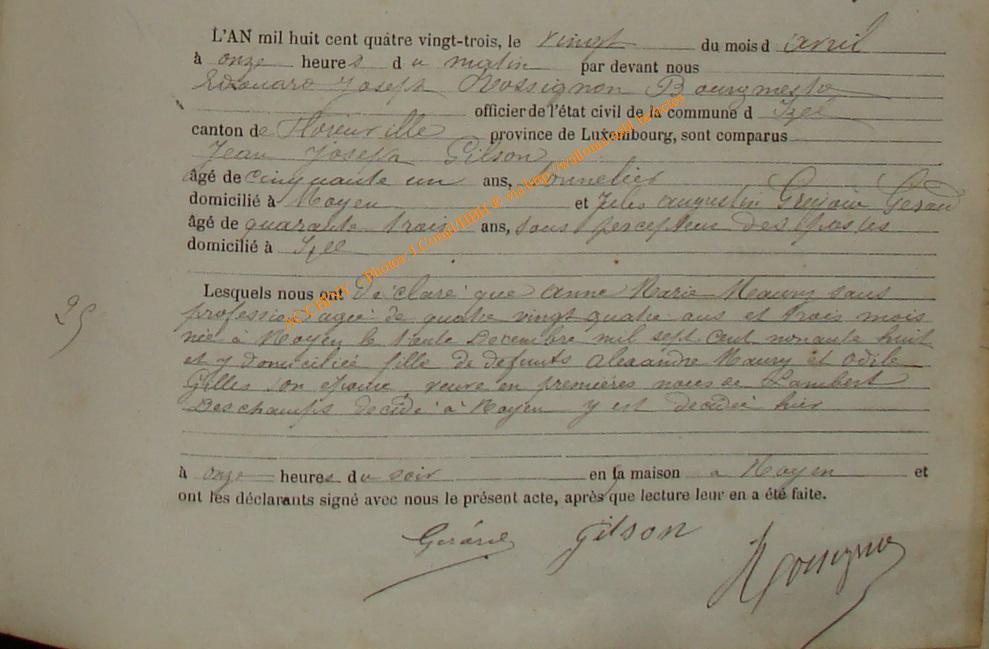 L'AN mil huit cent quatre vingt-trois, le vingt du mois d avril
à onze heures du matin par devant nous
Edouard Joseph Rossignon Bourgmestre
officier de l'état civil de la commune d Izel
canton de Florenville province de Luxembourg, sont comparus
Jean Joseph Gilson
âgé de cinquante un ans, tonnelier
domicilié à Moyen et Jules Augustin Gérard
âgé de quarante trois ans, sous percepteur des postes
domicilié à Izel
Lesquels nous ont déclaré que Anne Marie Maury sans
profession agée de quatre vingt quatre ans et trois mois
née à Moyen le trente Decembre mil sept cent nonante huit
et y domiciliée fille de defunts Alexandre Maury et Odile
Gilles son épouse, veuve en premières noces de Lambert
Deschamps décédé à Moyen y est décédée hier
25
à onze heures du soir en sa maison a Moyen et
ont les déclarants signé avec nous le présent acte, après que lecture leur en a été faite.
Gérard Gilson Rossignon